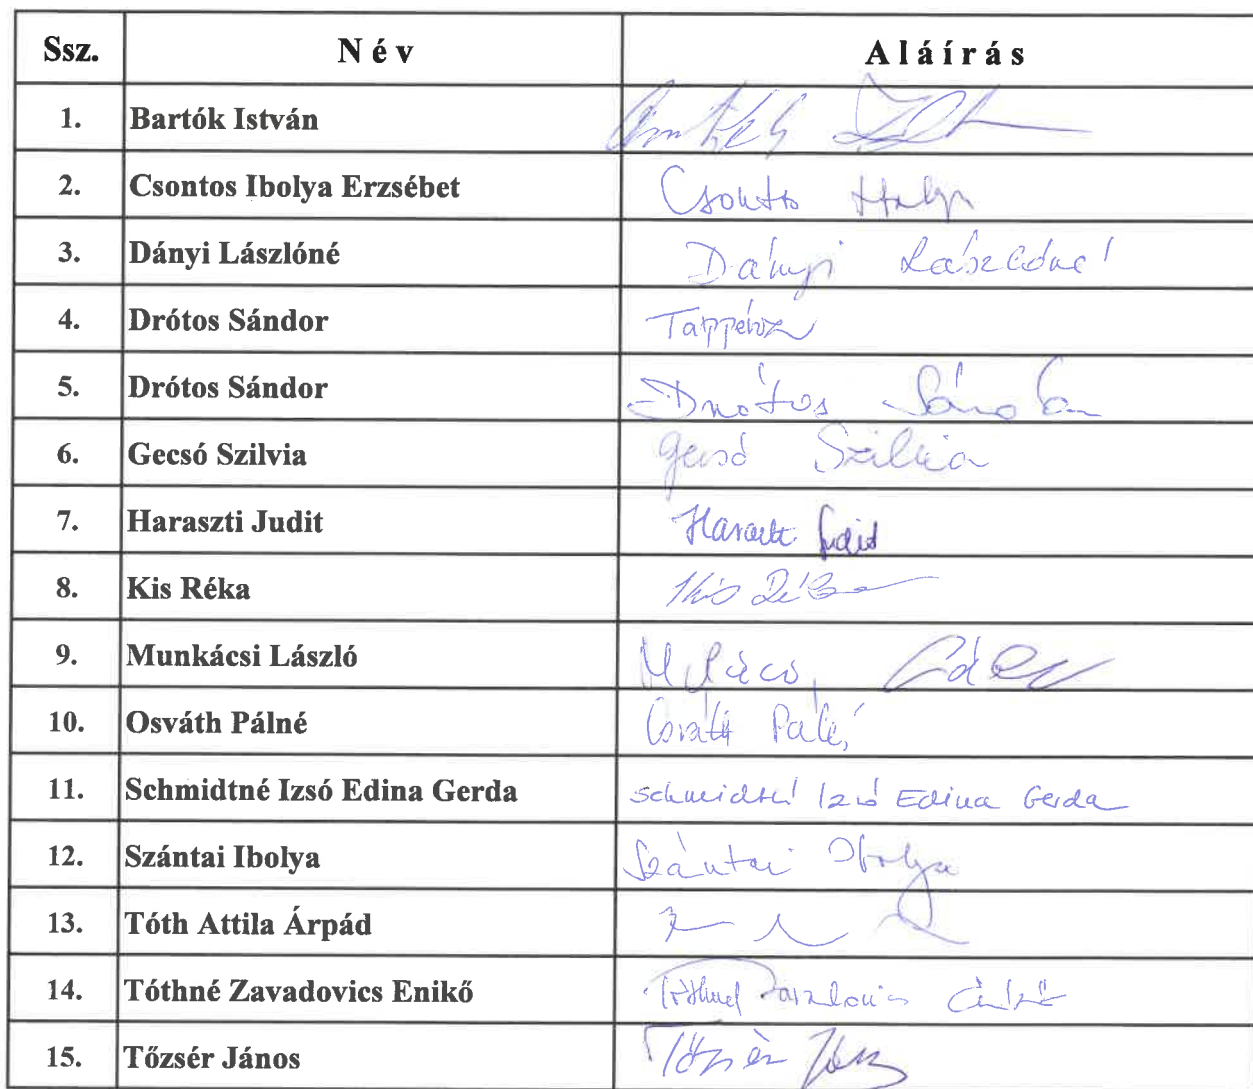 Ssz. Név Aláírás
1. Bartók István
2. Csontos Ibolya Erzsébet Csontos Ibolya
3. Dányi Lászlóné Dányi Lászlóné
4. Drótos Sándor
5. Drótos Sándor Drótos Sándor
6. Gecsó Szilvia Gecsó Szilvia
7. Haraszti Judit Haraszti Judit
8. Kis Réka Kis Réka
9. Munkácsi László
10. Osváth Pálné Osváth Pálné
11. Schmidtné Izsó Edina Gerda Schmidtné Izsó Edina Gerda
12. Szántai Ibolya Szántai Ibolya
13. Tóth Attila Árpád
14. Tóthné Zavadovics Enikő Tóthné Zavadovics Enikő
15. Tőzsér János Tőzsér János